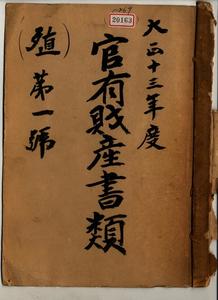 20163
大正十三年度
官有財産書類
(殖)第一號